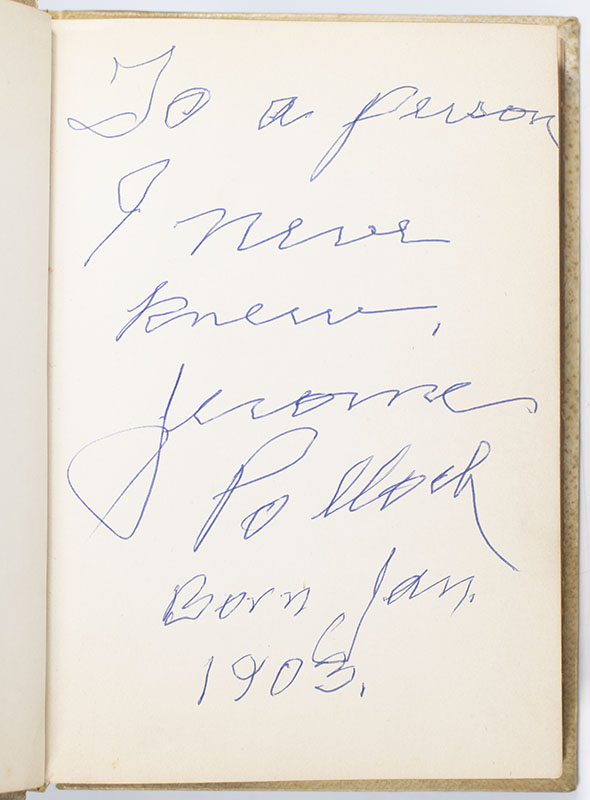 To a person
I never
knew,
Jerome
Pollock
Born Jan.
1903.